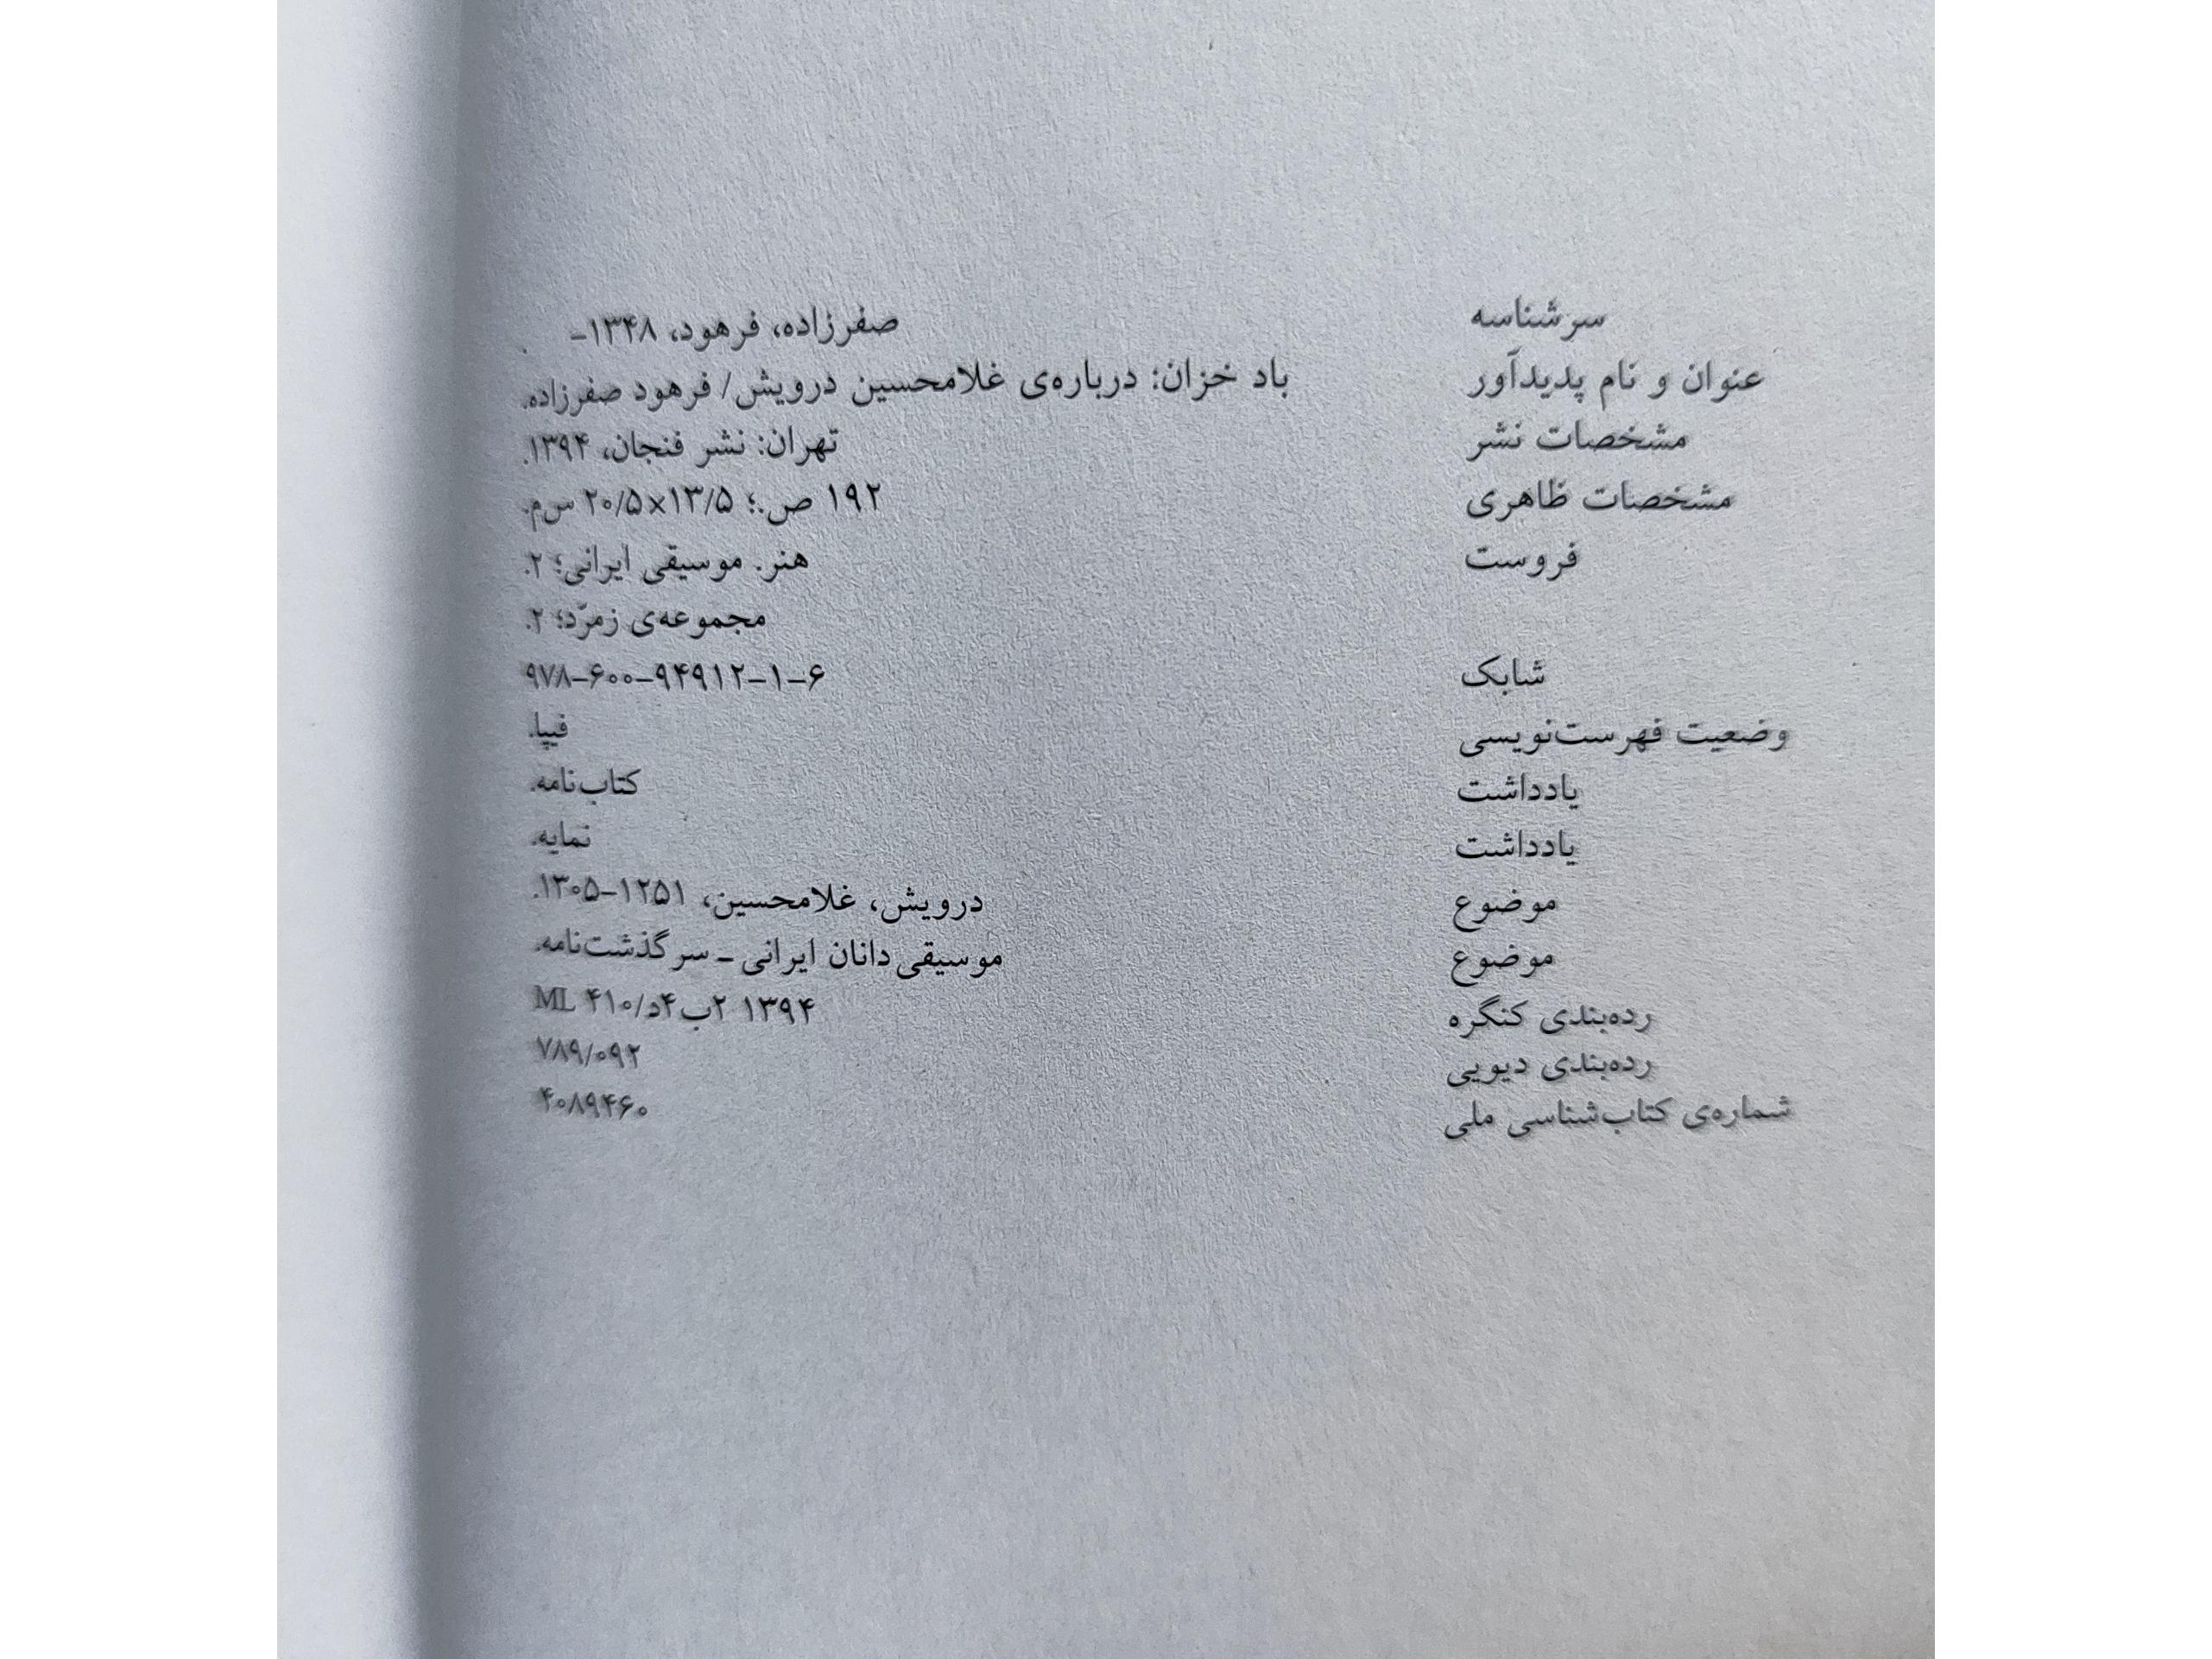 سرشناسه صفرزاده، فرهود، ۱۳۴۸-
عنوان و نام پدیدآور باد خزان: درباره‌ی غلامحسین درویش/ فرهود صفرزاده.
مشخصات نشر تهران: نشر فنجان، ۱۳۹۴.
مشخصات ظاهری ۱۹۲ ص.؛ ۱۳/۵×۲۰/۵ س‌م.
فروست هنر. موسیقی ایرانی؛ ۲.
مجموعه‌ی زمرّد؛ ۲.
شابک ۹۷۸-۶۰۰-۹۴۹۱۲-۱-۶
وضعیت فهرست‌نویسی فیپا.
یادداشت کتاب‌نامه.
یادداشت نمایه.
موضوع درویش، غلامحسین، ۱۲۵۱-۱۳۰۵.
موضوع موسیقی‌دانان ایرانی ـ سرگذشت‌نامه.
رده‌بندی کنگره ۱۳۹۴ ۲ب۴د/ML ۴۱۰
رده‌بندی دیویی ۷۸۹/۰۹۲
شماره‌ی کتاب‌شناسی ملی ۴۰۸۹۴۶۰